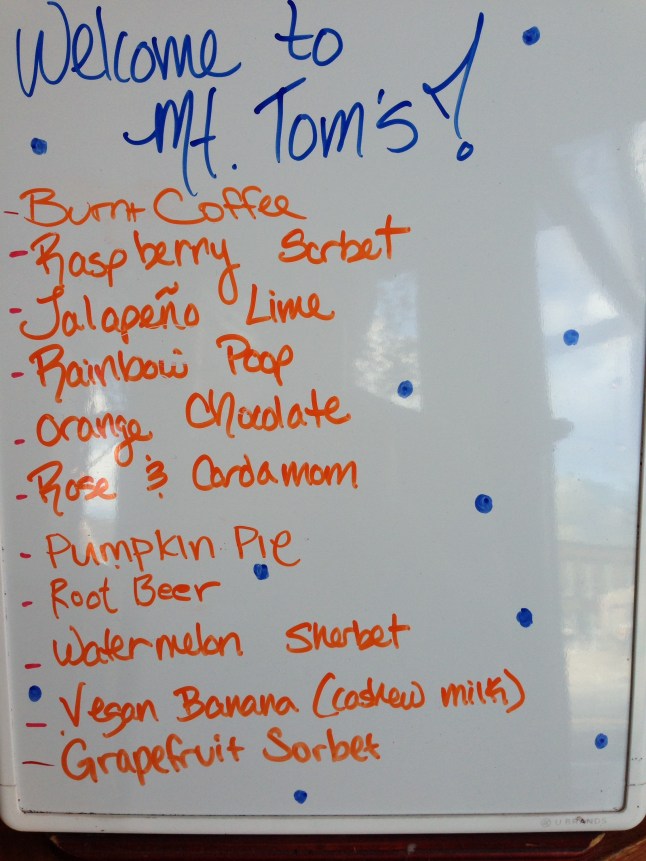 Welcome to
Mt. Tom's!
- Burnt Coffee
- Raspberry Sorbet
- Jalapeño Lime
- Rainbow Poop
- Orange Chocolate
- Rose & Cardamom
- Pumpkin Pie
- Root Beer
- Watermelon Sherbet
- Vegan Banana (cashew milk)
- Grapefruit Sorbet
© U BRANDS